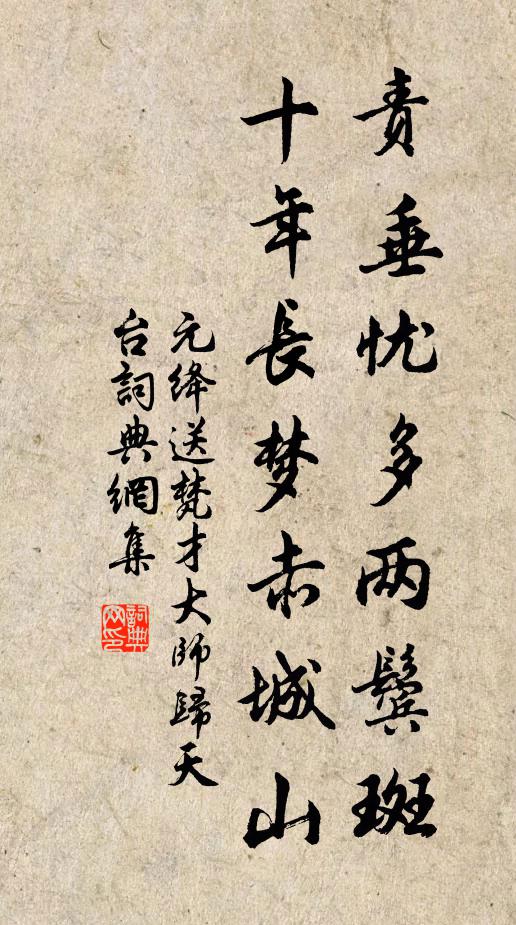 责垂忧多两鬓斑
十年長梦赤城山
元绛送梵才大师歸天
台詞典網集
詞典
网印